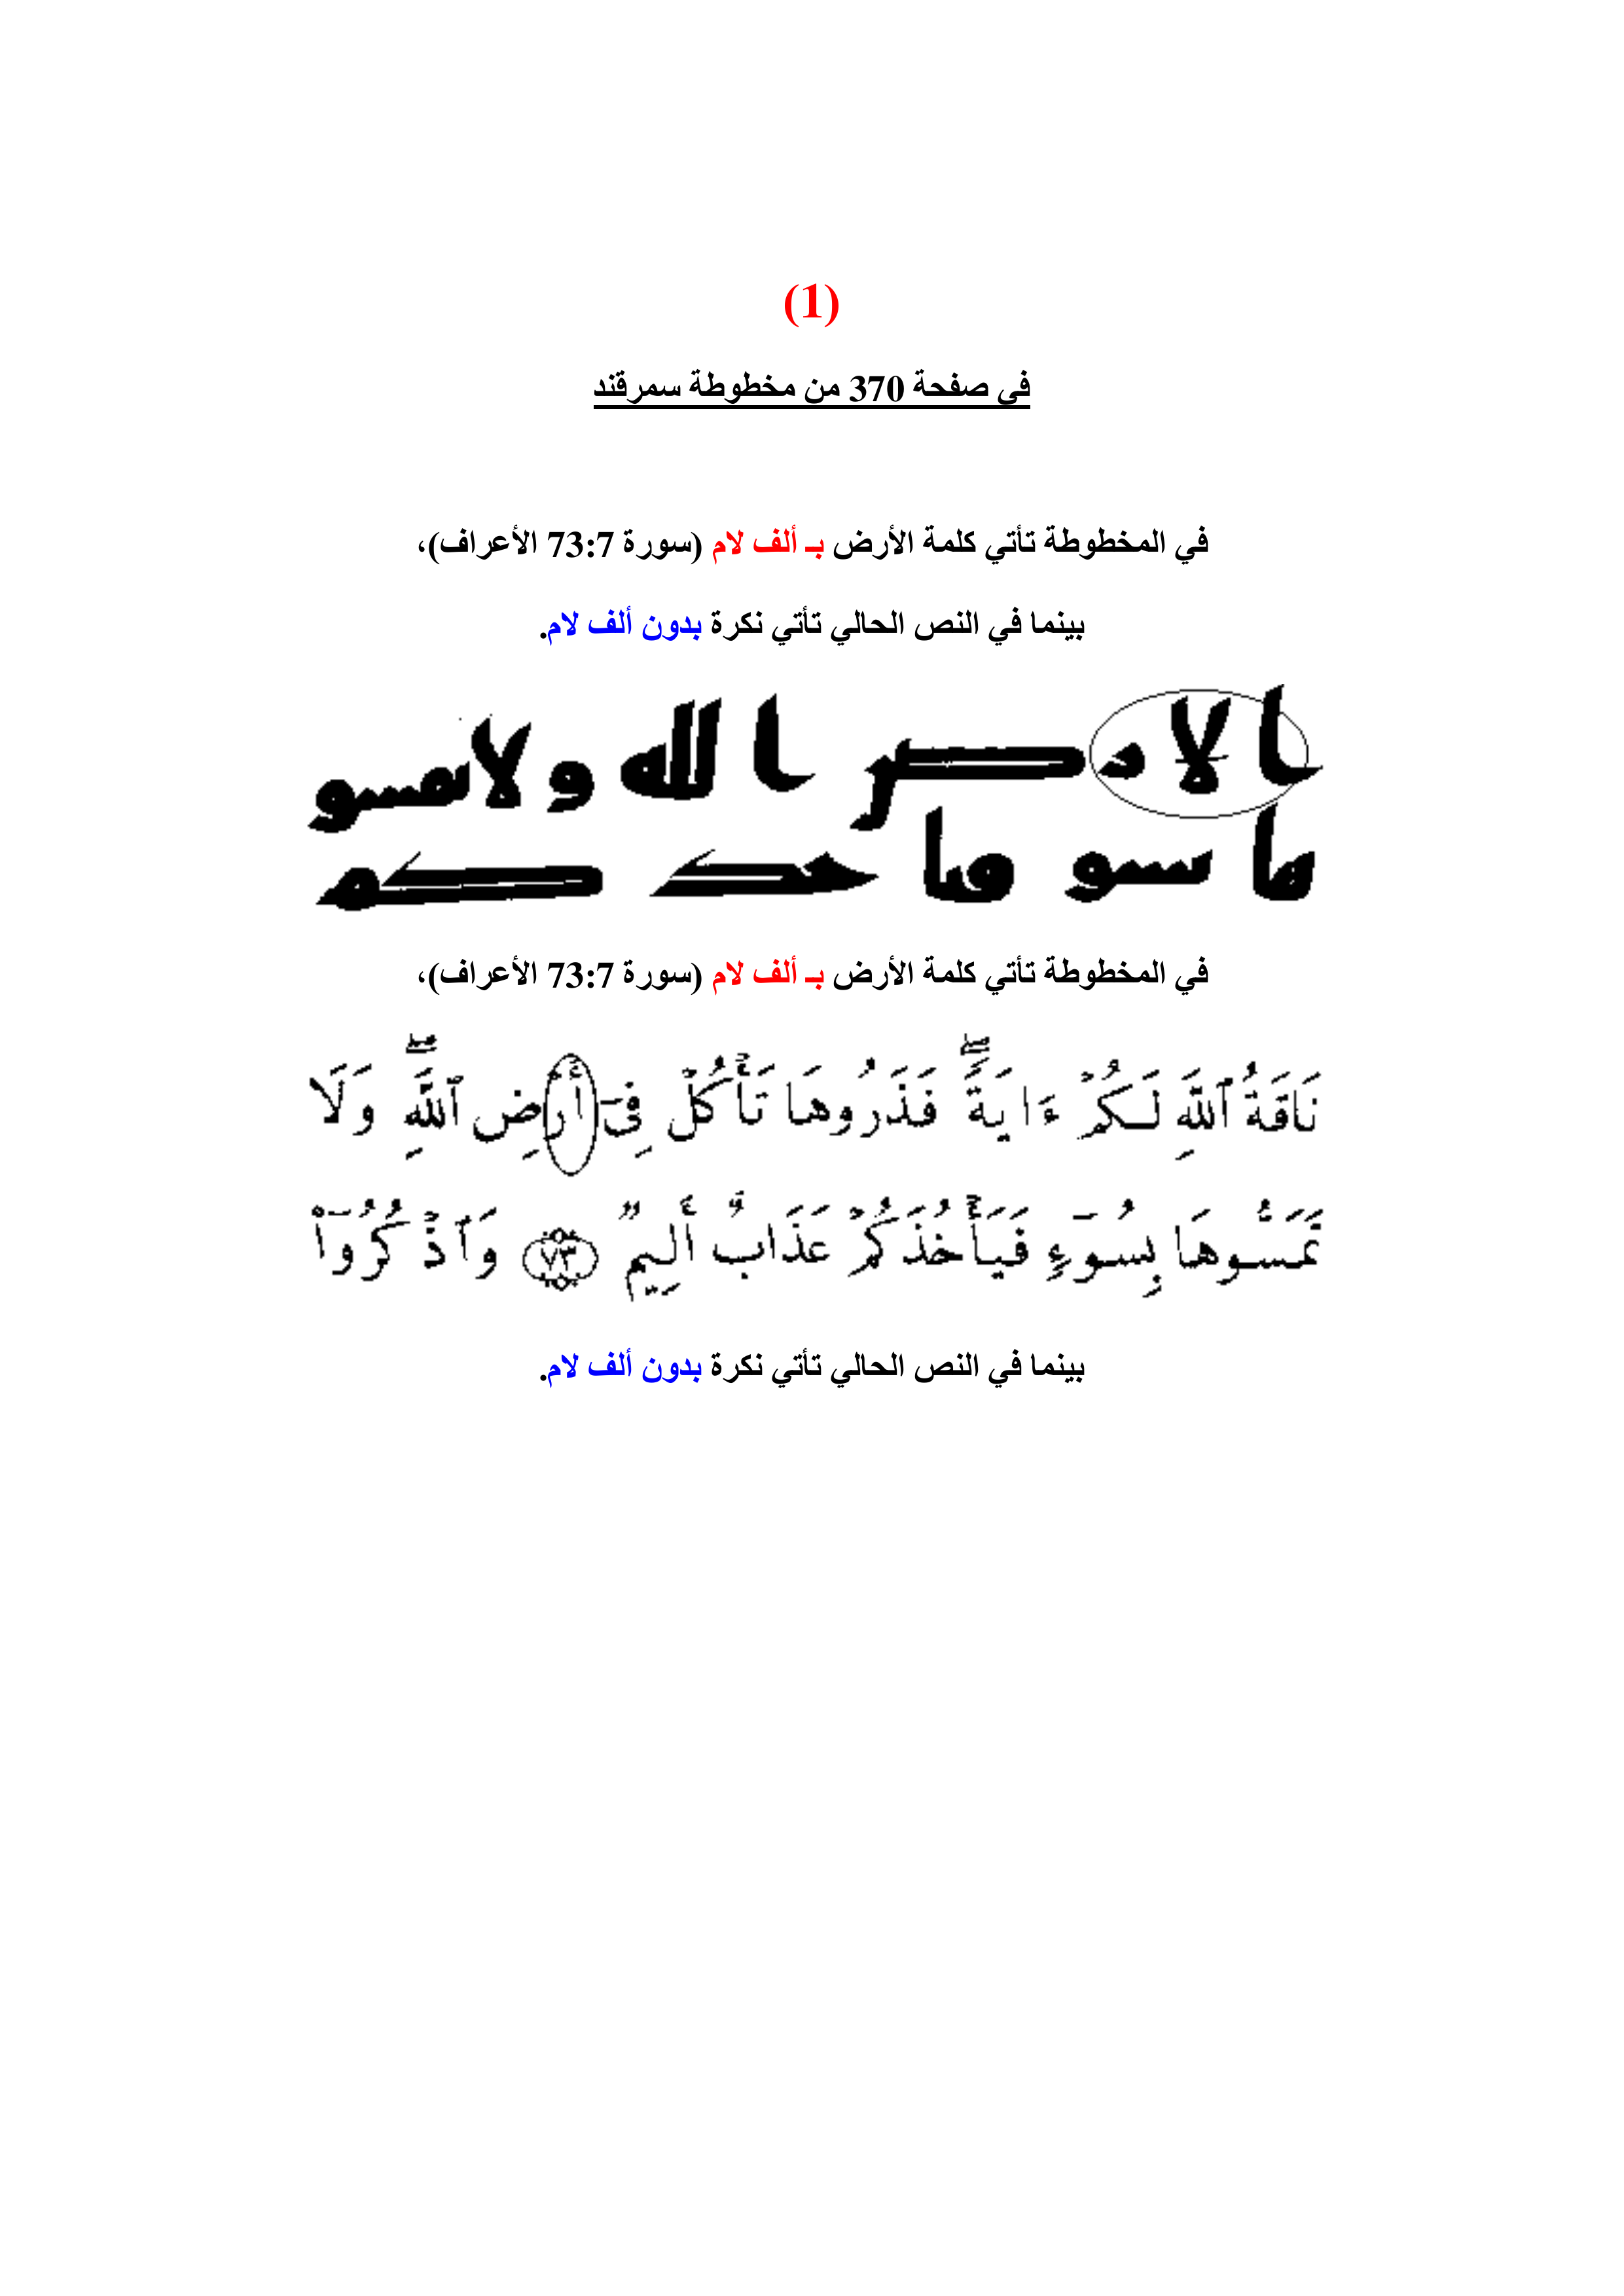 (1)
في صفحة 370 من مخطوطة سمرقند
في المخطوطة تأتي كلمة الأرض بـ ألف لام (سورة 73:7 الأعراف)،
بينما في النص الحالي تأتي نكرة بدون ألف لام.
الارض الله ولا تمسو
ها بسو فياخذكم
في المخطوطة تأتي كلمة الأرض بـ ألف لام (سورة 73:7 الأعراف)،
نَاقَةُ ٱللَّهِ لَكُمْ ءَايَةً ۖ فَذَرُوهَا تَأْكُلْ فِىٓ أَرْضِ ٱللَّهِ ۖ وَلَا
تَمَسُّوهَا بِسُوٓءٍ فَيَأْخُذَكُمْ عَذَابٌ أَلِيمٌ ٧٣ وَٱذْكُرُوٓا۟
بينما في النص الحالي تأتي نكرة بدون ألف لام.